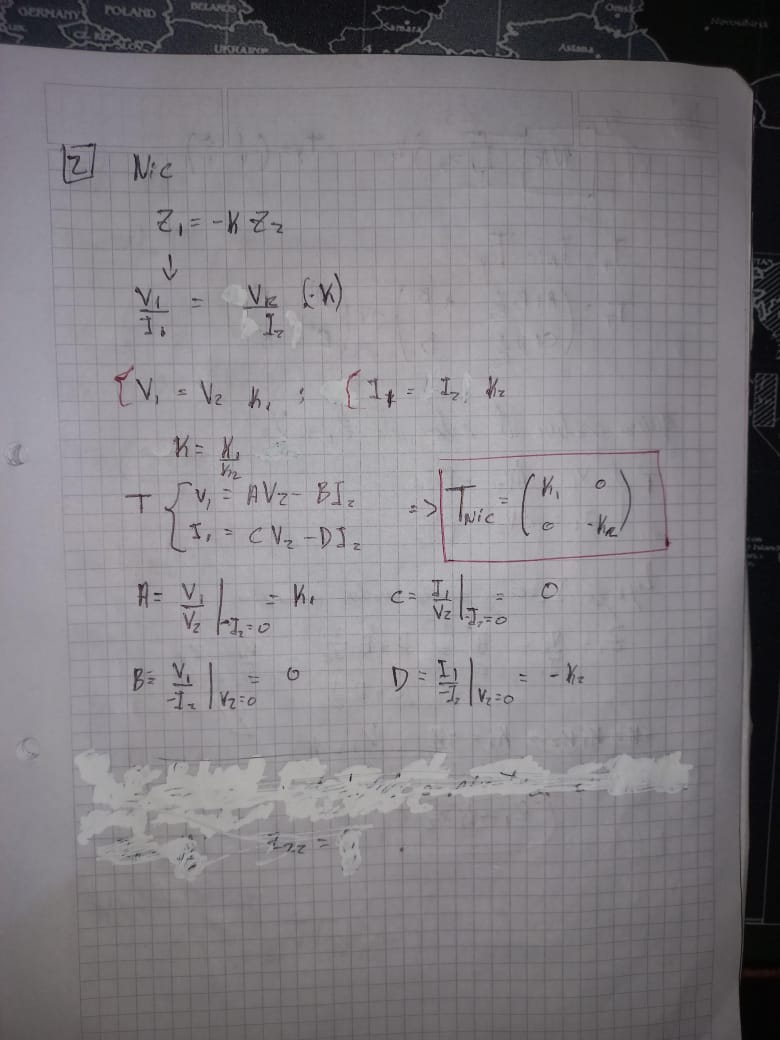 GERMANY POLAND BELARUS Omsk Novosibirsk
UKRAINE Samara Astana
2 Nic
Z₁ = -K Z₂
↓
V₁/I₁ = V₂/I₂ (-K)
{V₁ = V₂ K₁ ; {I₁ = I₂ K₂
K = K₁/K₂
T { V₁ = AV₂ - BI₂
I₁ = CV₂ - DI₂
=> T_Nic = (K₁ 0
0 -K₂)
A = V₁/V₂ |-I₂=0 = K₁ C = I₁/V₂ |-I₂=0 = 0
B = V₁/-I₂ |V₂=0 = 0 D = I₁/-I₂ |V₂=0 = -K₂